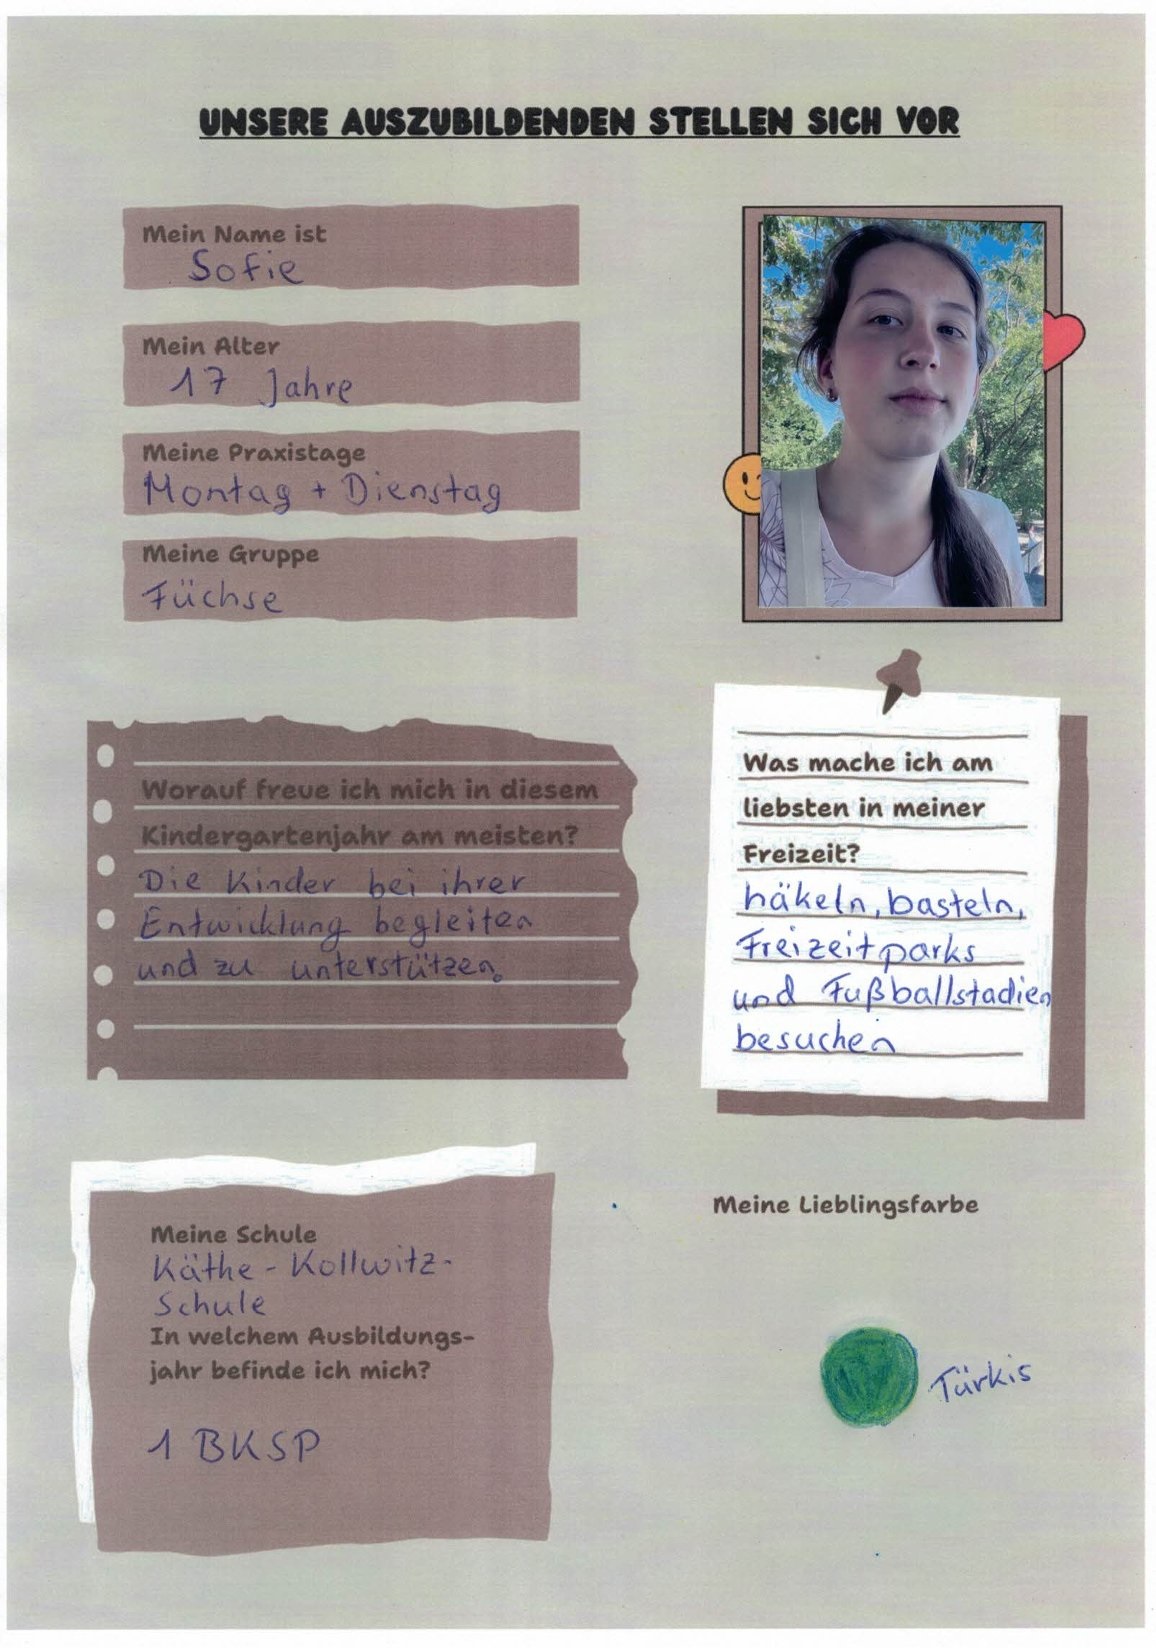 UNSERE AUSZUBILDENDEN STELLEN SICH VOR
Mein Name ist
Sofie
Mein Alter
17 Jahre
Meine Praxistage
Montag + Dienstag
Meine Gruppe
Füchse
Worauf freue ich mich in diesem
Kindergartenjahr am meisten?
Die Kinder bei ihrer
Entwicklung begleiten
und zu unterstützen.
Was mache ich am
liebsten in meiner
Freizeit?
häkeln, basteln,
Freizeitparks
und Fußballstadien
besuchen
Meine Schule
Käthe-Kollwitz-
Schule
In welchem Ausbildungs-
jahr befinde ich mich?
1 BKSP
Meine Lieblingsfarbe
Türkis